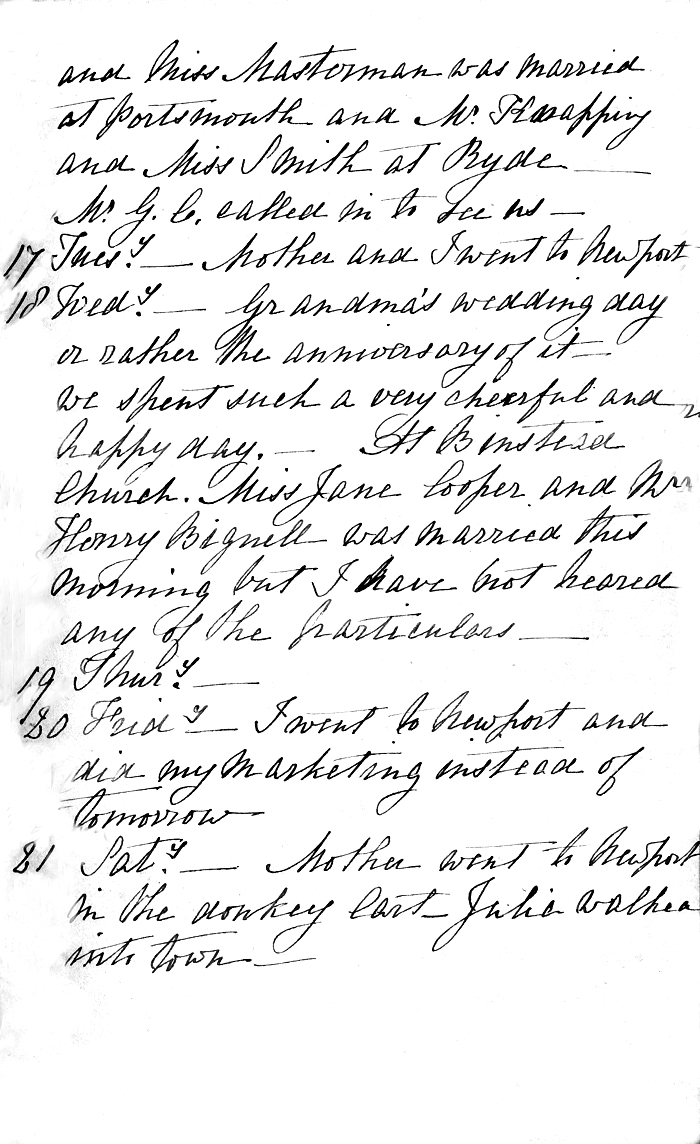 and Miss Masterman was married
at Portsmouth and Mr.
and Miss Smith at Ryde —
Mr. G. C. called in to see us —
17 Tues.y — Mother and I went to Newport
18 Wed.y — Grandma's wedding day
or rather the anniversary of it —
we spent such a very cheerful and
happy day. — At Binstead
Church. Miss Jane Cooper and Mr
Henry Bignell was married this
morning but I have not heared
any of the particulars —
19 Thur.y —
20 Frid y — I went to Newport and
did my Marketing instead of
tomorrow —
21 Sat.y — Mother went to Newport
in the donkey Cart — Julia walked
into town —